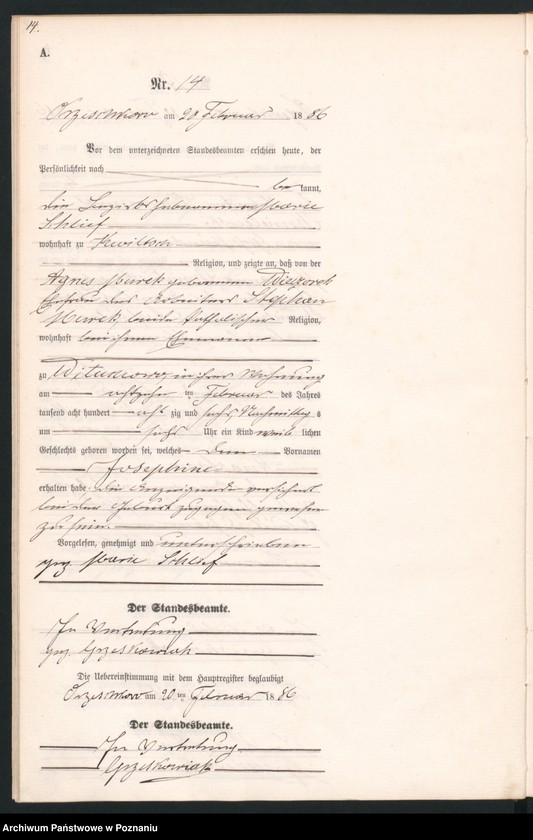 14.
A.
Nr. 14
Orzeschkowo am 20 Februar 1886
Vor dem unterzeichneten Standesbeamten erschien heute, der
Persönlichkeit nach
be kannt,
die Bezirkshebamme Marie
Schlief
wohnhaft zu Kwiltsch
Religion, und zeigte an, daß von der
Agnes Marek geborenen Wieczorek
Ehefrau des Arbeiters Stephan
Marek, beide katholischer Religion,
wohnhaft bei ihrem Ehemanne
zu Wituchowo in ihrer Wohnung
am achtzehn ten Februar des Jahres
tausend acht hundert acht zig und sechs Nachmittag s
um sechs Uhr ein Kind weib lichen
Geschlechts geboren worden sei, welches den Vornamen
Josephine
erhalten habe, die Anzeigende versichert
bei der Geburt zugegen gewesen
zu sein.
Vorgelesen, genehmigt und unterschrieben
gez. Marie Schlief
Der Standesbeamte.
In Vertretung
gez. Grzeskowiak
Die Uebereinstimmung mit dem Hauptregister beglaubigt
Orzeschkowo am 20 ten Februar 1886
Der Standesbeamte.
In Vertretung
Grzeskowiak
Archiwum Państwowe w Poznaniu